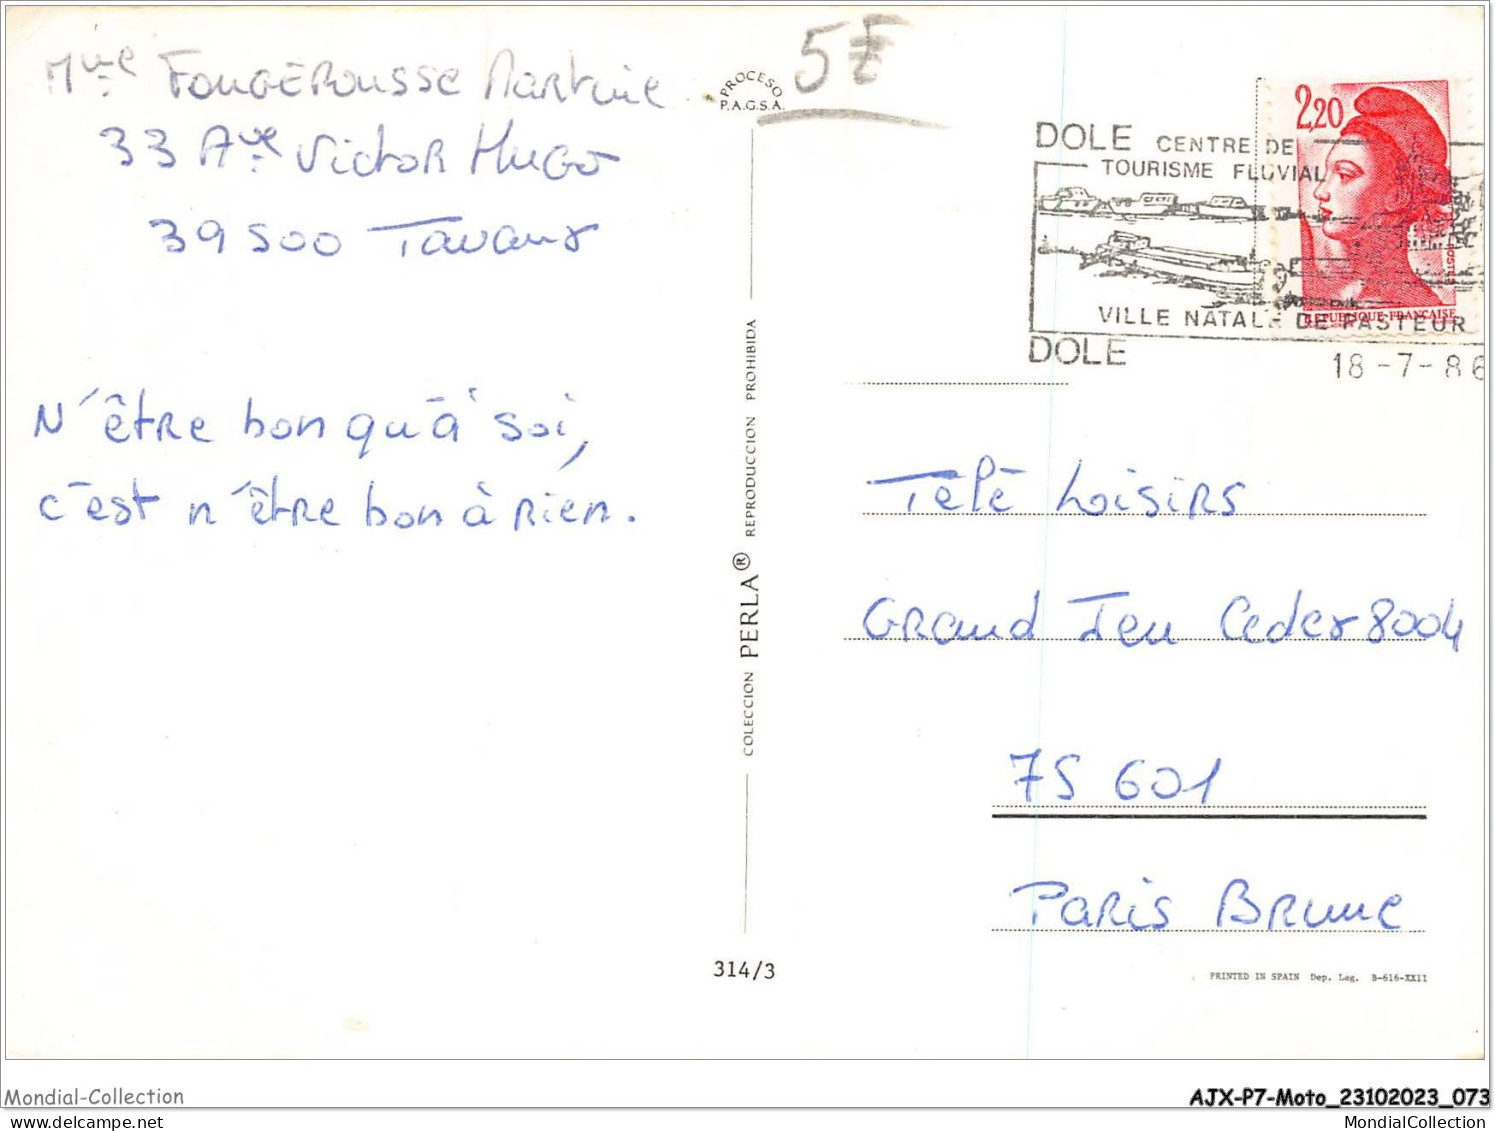 Mme FOUGEROUSSE Martine
33 Ave Victor Hugo
39500 Tavaux
N'être bon qu'à soi,
c'est n'être bon à rien.
PROCESO
P.A.G.S.A.
5F
COLECCION PERLA® REPRODUCCION PROHIBIDA
314/3
2,20
DOLE CENTRE DE
TOURISME FLUVIAL
VILLE NATALE DE PASTEUR
DOLE
18-7-86
POSTES
REPUBLIQUE FRANÇAISE
Télé Loisirs
Grand Jeu Cedex 8004
75 601
Paris Brune
PRINTED IN SPAIN Dep. Leg. B-616-XXII
Mondial-Collection
AJX-P7-Moto_23102023_073
MondialCollection